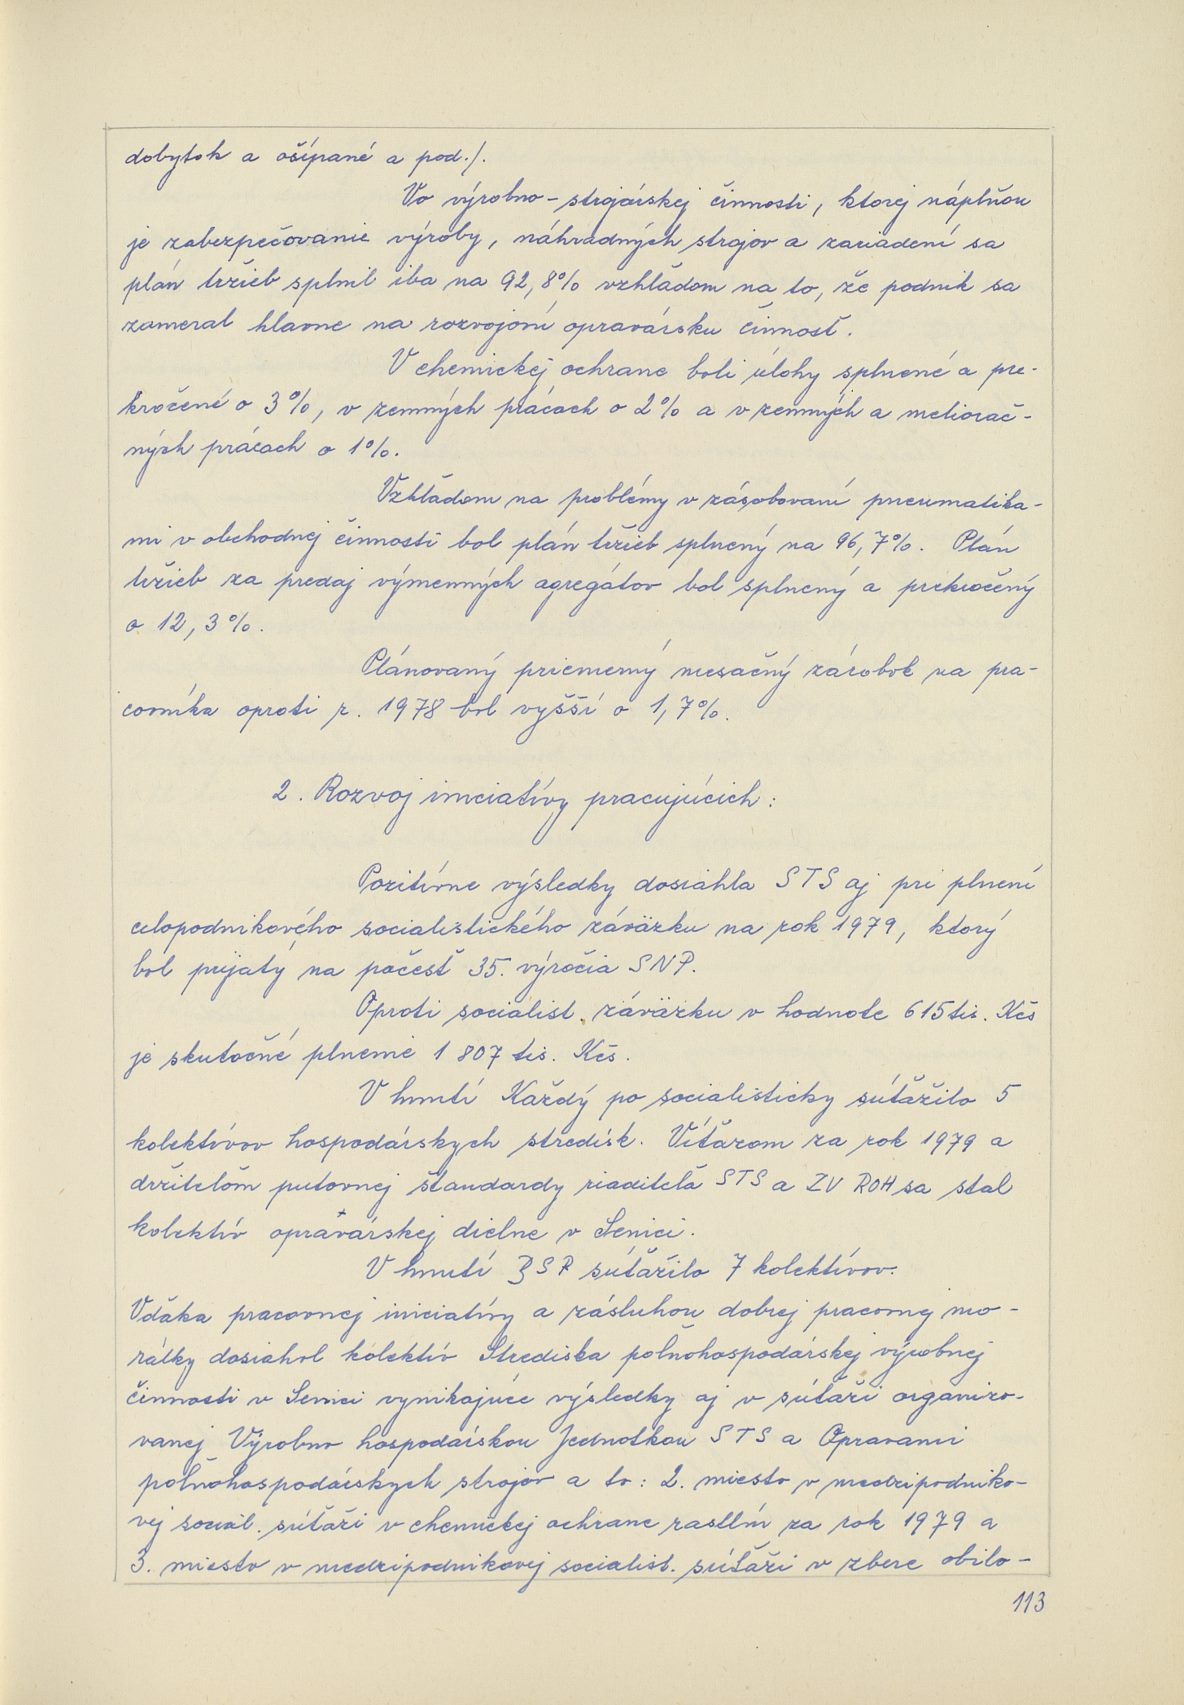 dobytok a ošípané a pod./.
Vo výrobno-strojárskej činnosti, ktorej náplňou
je zabezpečovanie výroby, náhradných strojov a zariadení sa
plán tržieb splnil iba na 92,8% vzhľadom na to, že podnik sa
zameral hlavne na rozvojoní opravársku činnosť.
V chemickej ochrane boli úlohy splnené a pre-
kročené o 3%, v zemných prácach o 2% a v zemných a melorač-
ných prácach o 1%.
Vzhľadom na problémy v zásobovaní pneumatika-
mi v obchodnej činnosti bol plán tržieb splnený na 96,7%. Plán
tržieb za predaj výmenných agregátov bol splnený a prekročený
o 12,3%.
Plánovaný priemerný mesačný zárobok na pra-
covníka oproti r. 1978 bol vyšší o 1,7%.
2. Rozvoj iniciatívy pracujúcich:
Pozitívne výsledky dosiahla STS aj pri plnení
celopodnikového socialistického záväzku na rok 1979, ktorý
bol prijatý na počesť 35. výročia SNP.
Oproti socialist. záväzku v hodnote 615 tis. Kčs
je skutočné plnenie 1 807 tis. Kčs.
V hnutí Každý po socialisticky súťažilo 5
kolektívov hospodárskych stredísk. Víťazom za rok 1979 a
držiteľom putovnej štandardy riaditeľa STS a ZV ROH sa stal
kolektív opravárskej dielne v Senici.
V hnutí BSP súťažilo 7 kolektívov.
Vďaka pracovnej iniciatívy a zásluhou dobrej pracovnej mo-
rálky dosiahol kolektív Strediska poľnohospodárskej výrobnej
činnosti v Senici vynikajúce výsledky aj v súťaži organizo-
vanej Výrobno hospodárskou Jednotkou STS a Opravami
poľnohospodárskych strojov a to: 2. miesto v medzipodniko-
vej social. súťaži v chemickej ochrane rastlín za rok 1979 a
3. miesto v medzipodnikovej socialist. súťaži v zbere obilo-
113